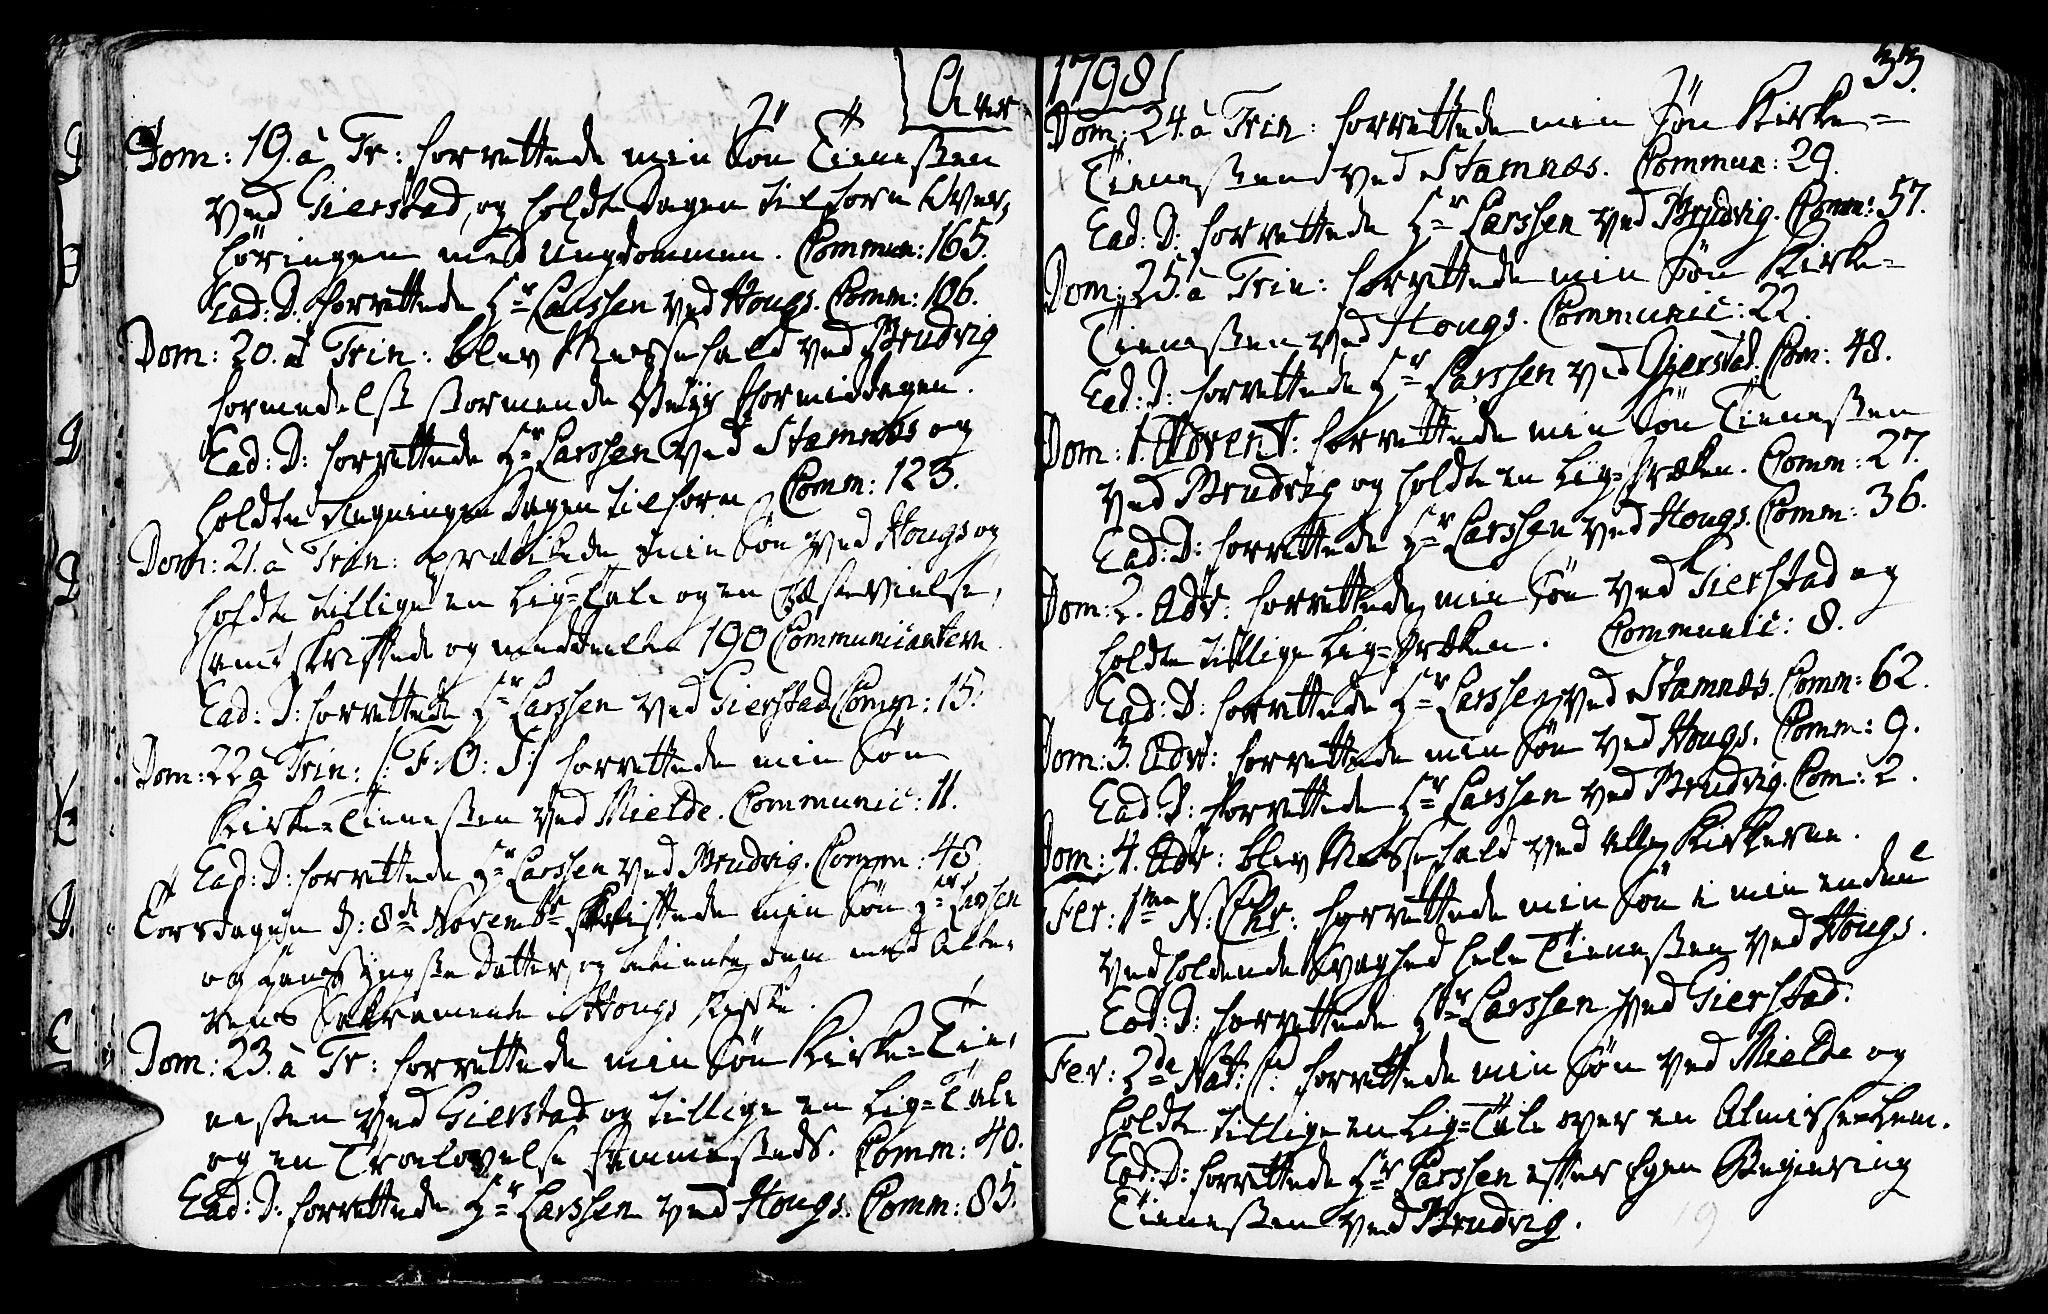 Anno
Dom: 19. à Tr: forrettede min Søn Tienesten
ved Gierstad, og holdte Dagen til forn Over,
høringen med Ungdommen. Commun: 165.
Ead: D. forrettede Hr Larssen ved Hougs. Comm: 106.
Dom: 20. à Trin: blev Messefald ved Brudvig
formedelst stormende Veyr Formiddagen.
Ead: D: forrettede Hr Larssen ved Stamnæs og
holdte Dagen tilforn Comm: 123.
Dom: 21. à Trin: prædikede min Søn ved Hougs og
holdte tillige en Lig-Tale og en Vielse,
samt skriftede og meddeelte 190 Communicantern
Ead: D: forrettede Hr Larssen ved Gierstad Comm: 15.
Dom: 22 à Trin: /: F: O: S:/ forrettede min Søn
Kirke-Tienesten ved Mielde. Communic: 11.
Ead: D: forrettede Hr Larssen ved Brudvig. Comm: 48.
Torsdagen d: 8de Novembr skriftede min Søn Hr Larssen
og Hans yngste Datter, og betiente dem med Alte-
rens Sakramente i Hougs Kirke.
Dom: 23. à Tr: forrettede min Søn Kirke-Tie,
nesten ved Gierstad og tillige en Lig-Tale
og en Troelovelse sammesteds. Comm: 40.
Ead: D: forrettede Hr Larssen ved Hougs. Comm: 85.
1798
33.
Dom: 24. à Trin: forrettede min Søn Kirke-
Tienesten ved Stamnæs. Commun: 29.
Ead: D: forrettede Hr Larssen ved Brudvig. Comm: 57.
Dom: 25. à Trin: forrettede min Søn Kirke-
Tienesten ved Hougs. Communic: 22.
Ead: D: forrettede Hr Larssen ved Gierstad. Com: 48.
Dom: 1. Advent: forrettede min Søn Tienesten
ved Brudvig og holdte en Lig-Præken. Comm: 27.
Ead: D: forrettede Hr Larssen ved Hougs. Comm: 36.
Dom: 2. Adv: forrettede min Søn ved Gierstad og
holdte tillige Lig-Præken. Communic: 8.
Ead: D: forrettede Hr Larssen ved Stamnæs. Comm: 62.
Dom: 3. Adv: forrettede min Søn ved Hougs. Comm: 9.
Ead: D: forrettede Hr Larssen ved Brudvig. Com: 2.
Dom: 4. Adv: blev Messefald ved alle Kirkerne.
Fer: 1ma N: Chr: forrettede min Søn i min endnu
vedholdende Svaghed hele Tienesten ved Hougs.
Eod: D: forrettede Hr Larssen ved Gierstad.
Fer: 2de Nat: C: forrettede min Søn ved Mielde og
holdte tillige en Lig-Tale over en Almisse-Lem.
Eod: D: forrettede Hr Larssen efter Egen Begiering
Tienesten ved Brudvig.
19